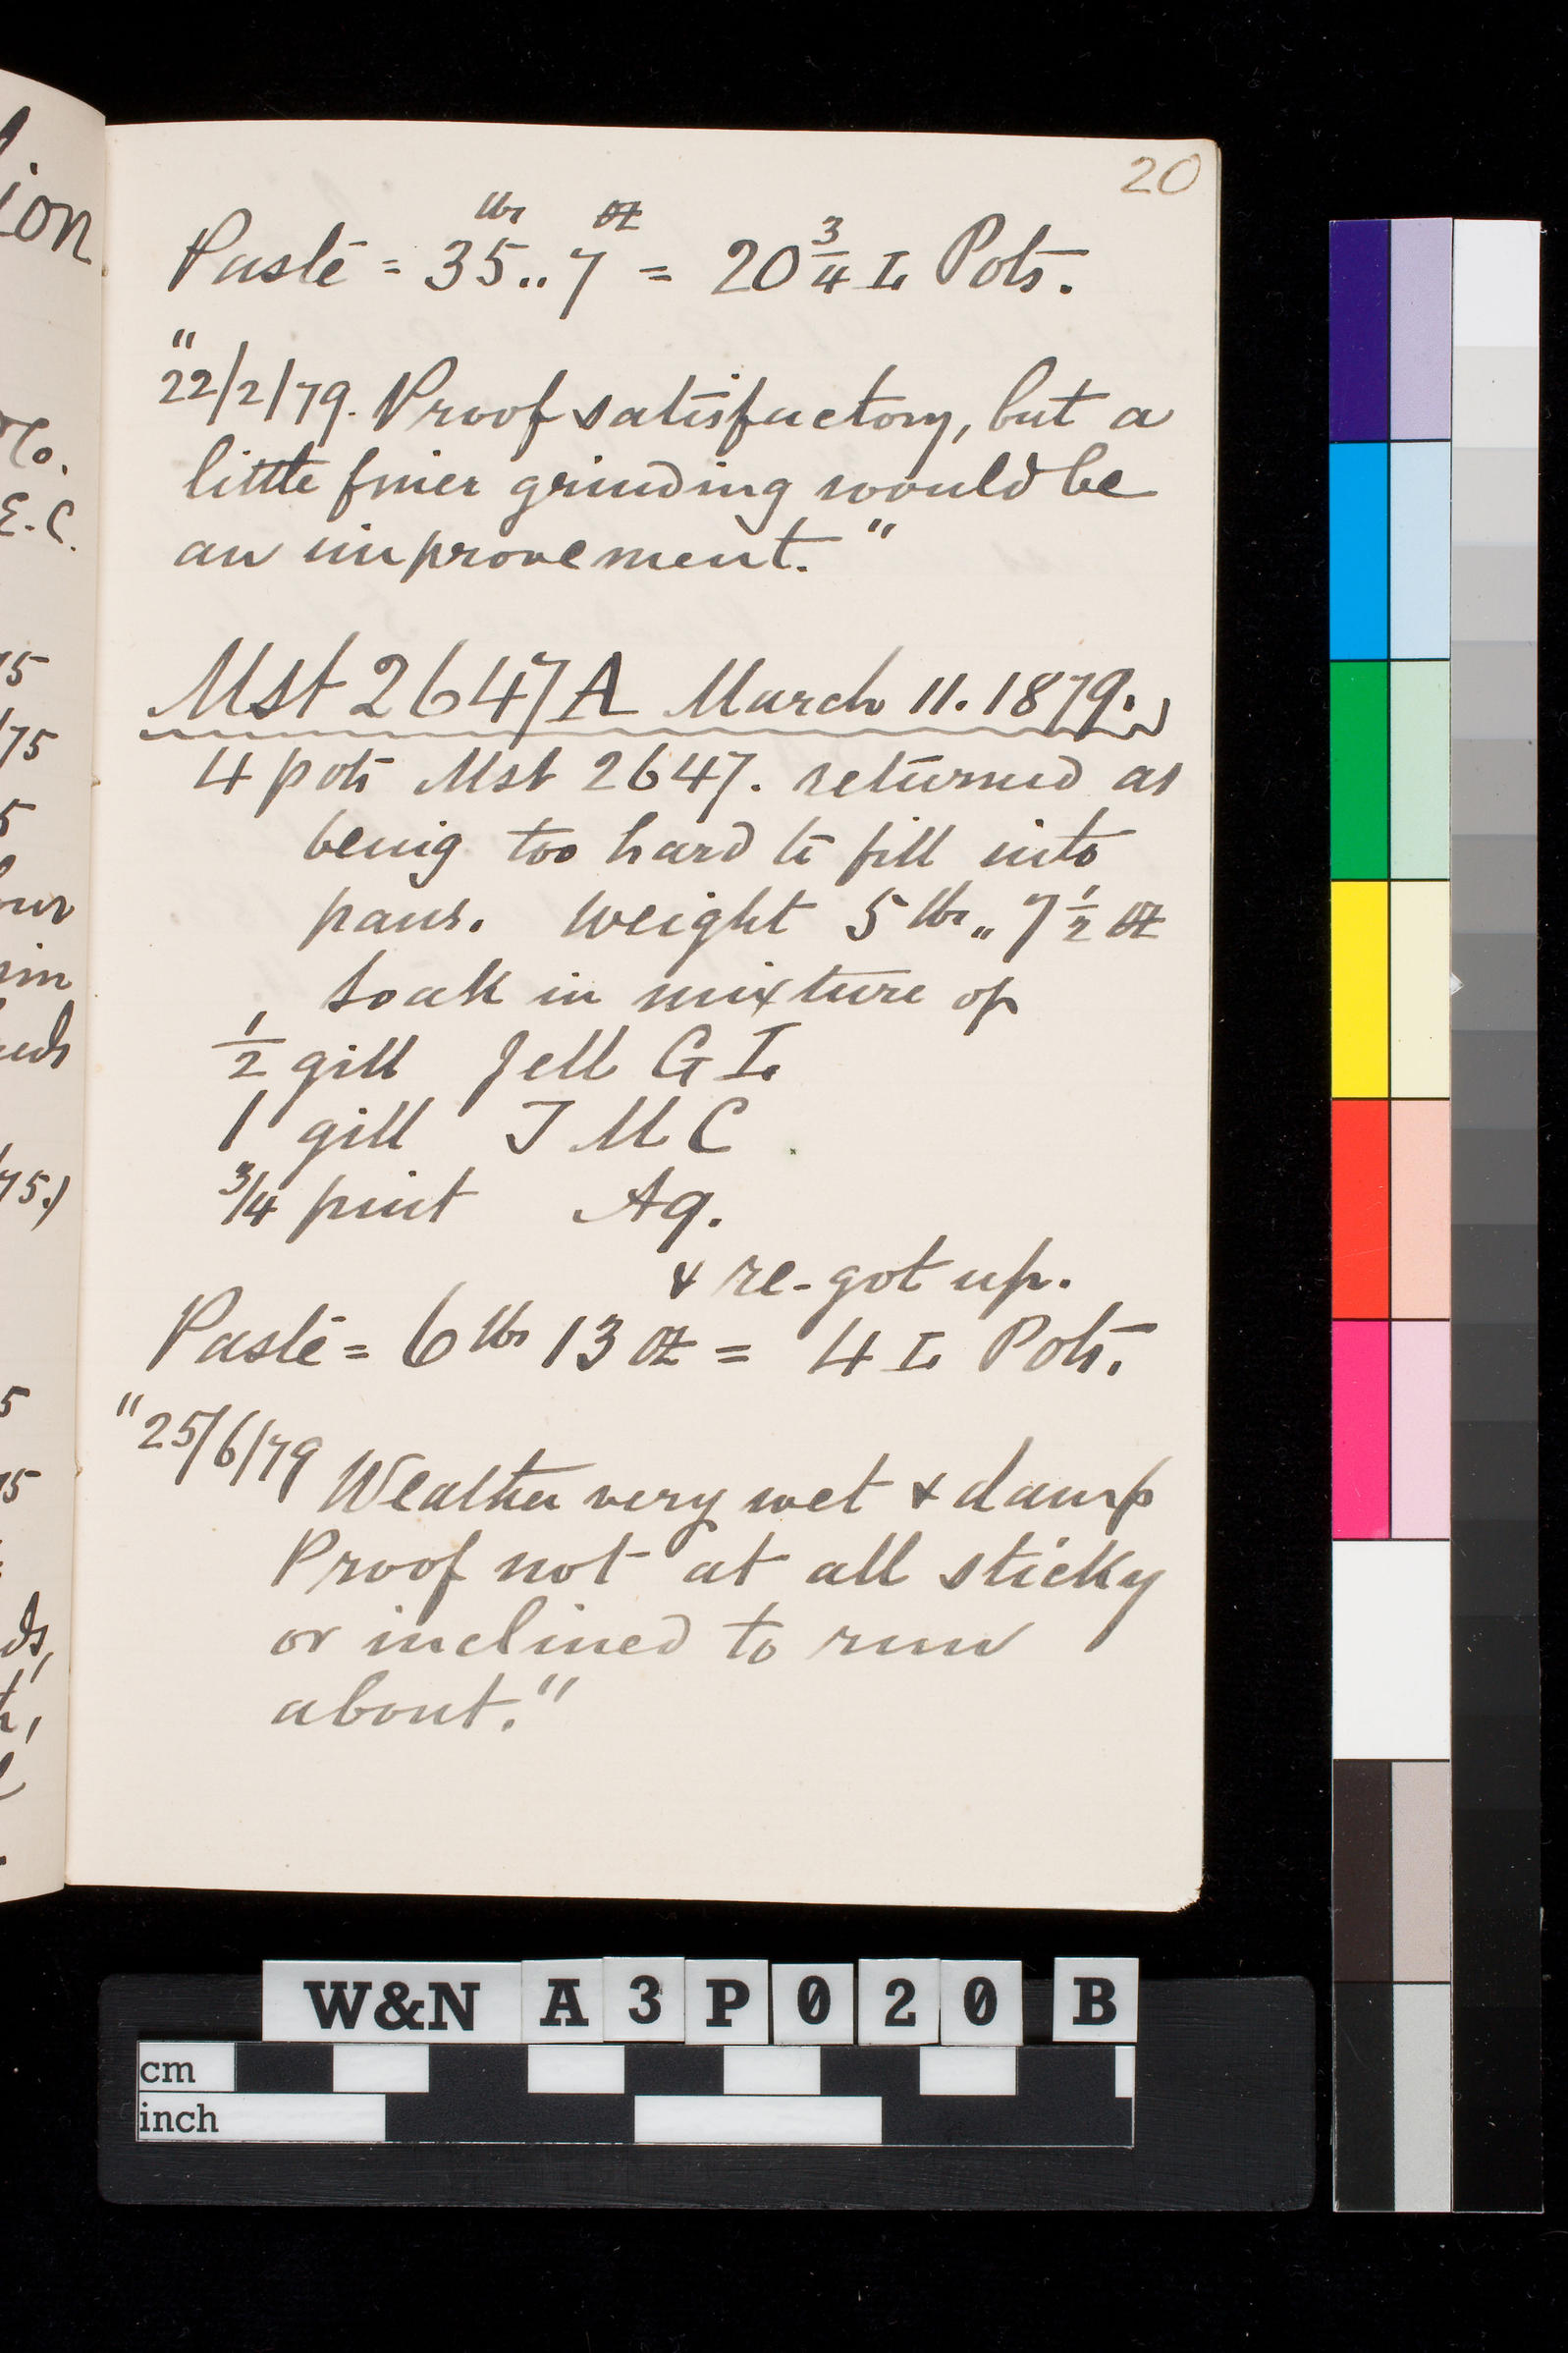 20
lbs oz
Paste = 35..7 = 20 3/4 L Pots.
"22/2/79. Proof satisfactory, but a
little finer grinding would be
an improvement."
Mst 2647A March 11. 1879.
4 pots Mst 2647. returned as
being too hard to fill into
pans. Weight 5 lbs,, 7 1/2 oz
Soak in mixture of
1/2 gill Jell G L
1 gill J M C
3/4 pint Aq.
& re-got up.
Paste = 6 lbs 13 oz = 4 L Pots.
"25/6/79 Weather very wet & damp
Proof not at all sticky
or inclined to run
about."
ion
Co.
E.C.
75
/75
5
75.)
5
75
W&N A3P020 B
cm
inch